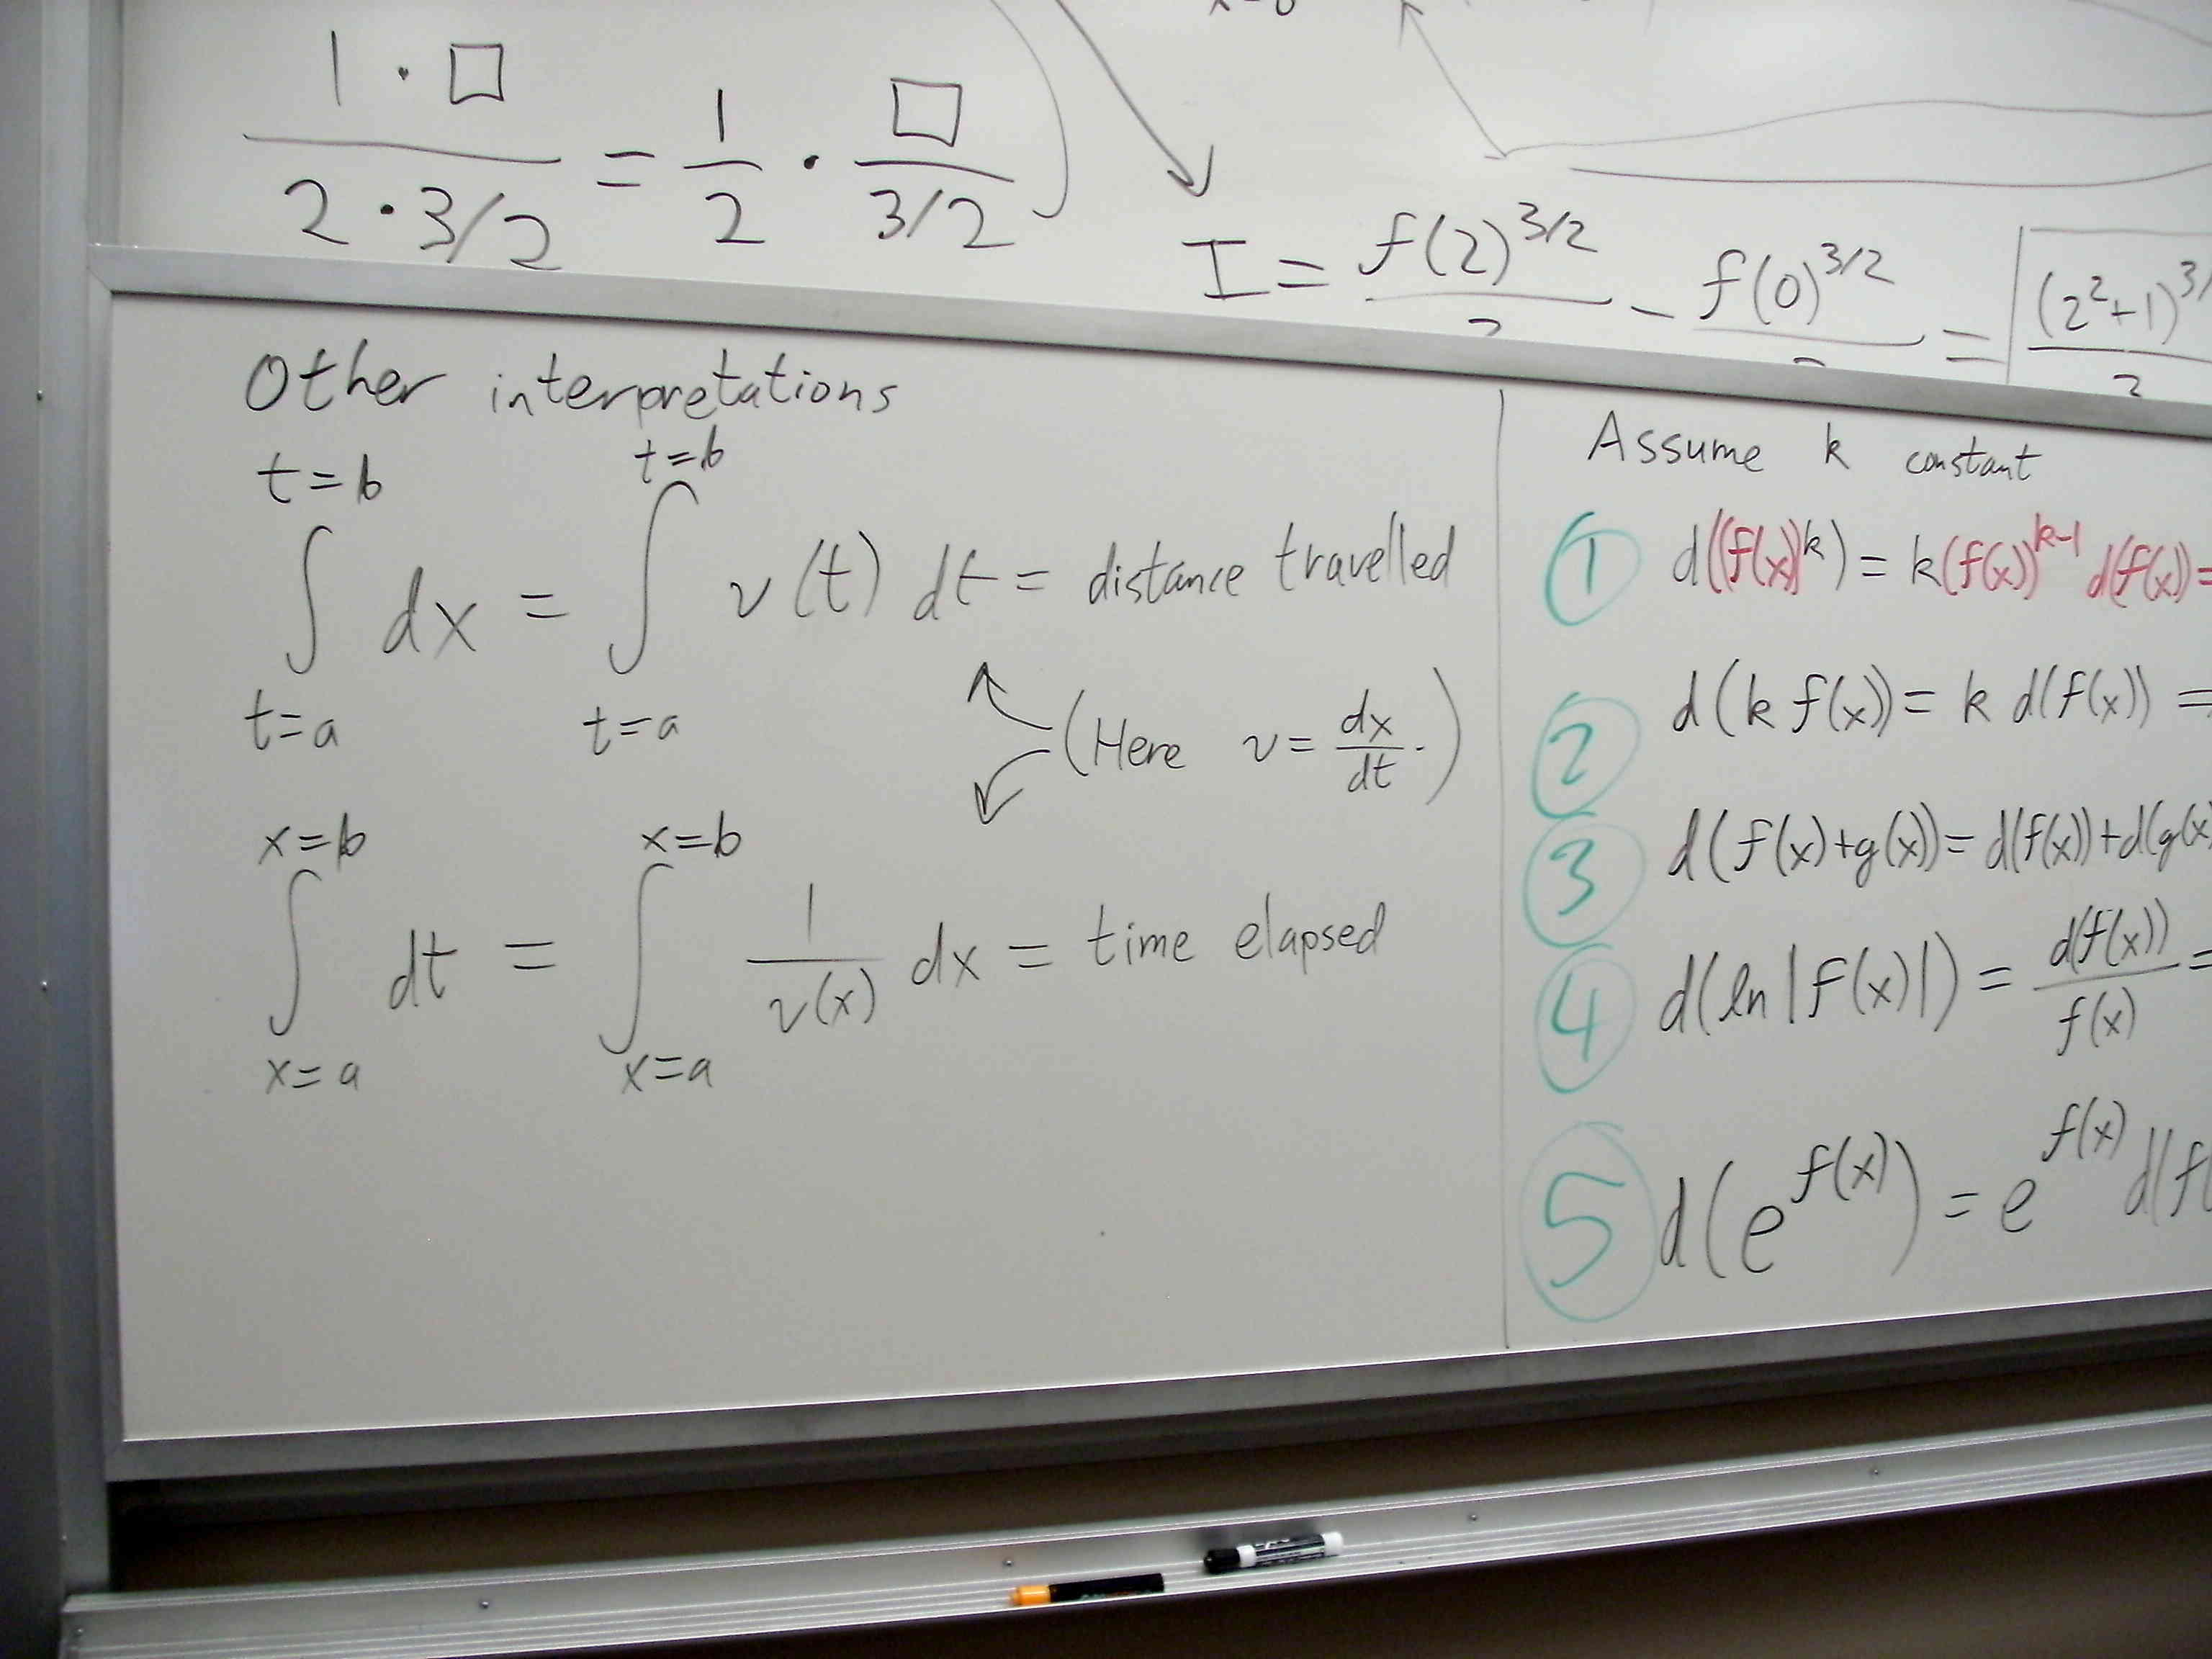 1 · □ / 2 · 3/2 = 1/2 · □ / 3/2 )
I = f(2)^3/2 / 3 - f(0)^3/2 / 3 = (2²+1)^3/ / 3
Other interpretations
∫_{t=a}^{t=b} dx = ∫_{t=a}^{t=b} v(t) dt = distance travelled
(Here v = dx/dt.)
∫_{x=a}^{x=b} dt = ∫_{x=a}^{x=b} 1/v(x) dx = time elapsed
Assume k constant
1 d((f(x))^k) = k(f(x))^{k-1} d(f(x)) =
2 d(k f(x)) = k d(f(x)) =
3 d(f(x)+g(x)) = d(f(x))+d(g(x)
4 d(ln|f(x)|) = d(f(x))/f(x) =
5 d(e^{f(x)}) = e^{f(x)} d(f(